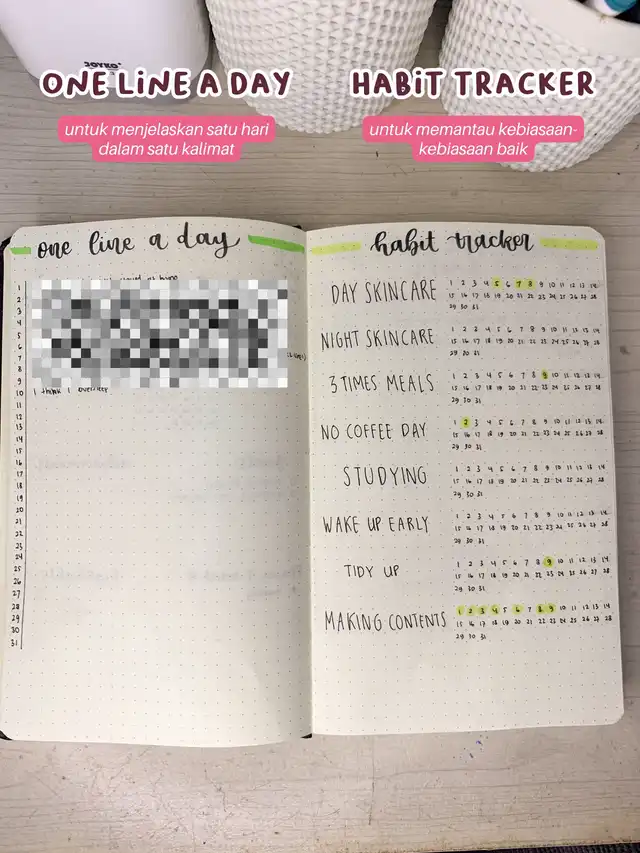 JOYKO
ONE LINE A DAY
untuk menjelaskan satu hari
dalam satu kalimat
HABIT TRACKER
untuk memantau kebiasaan-
kebiasaan baik
one line a day
1
2
3
4
5
6
7
8
9
10
11
12
13
14
15
16
17
18
19
20
21
22
23
24
25
26
27
28
29
30
31
I think I oversleep
habit tracker
DAY SKINCARE
1 2 3 4 5 6 7 8 9 10 11 12 13 14
15 16 17 18 19 20 21 22 23 24 25 26 27 28
29 30 31
NIGHT SKINCARE
1 2 3 4 5 6 7 8 9 10 11 12 13 14
15 16 17 18 19 20 21 22 23 24 25 26 27 28
29 30 31
3 TIMES MEALS
1 2 3 4 5 6 7 8 9 10 11 12 13 14
15 16 17 18 19 20 21 22 23 24 25 26 27 28
29 30 31
NO COFFEE DAY
1 2 3 4 5 6 7 8 9 10 11 12 13 14
15 16 17 18 19 20 21 22 23 24 25 26 27 28
29 30 31
STUDYING
1 2 3 4 5 6 7 8 9 10 11 12 13 14
15 16 17 18 19 20 21 22 23 24 25 26 27 28
29 30 31
WAKE UP EARLY
1 2 3 4 5 6 7 8 9 10 11 12 13 14
15 16 17 18 19 20 21 22 23 24 25 26 27 28
29 30 31
TIDY UP
1 2 3 4 5 6 7 8 9 10 11 12 13 14
15 16 17 18 19 20 21 22 23 24 25 26 27 28
29 30 31
MAKING CONTENTS
1 2 3 4 5 6 7 8 9 10 11 12 13 14
15 16 17 18 19 20 21 22 23 24 25 26 27 28
29 30 31